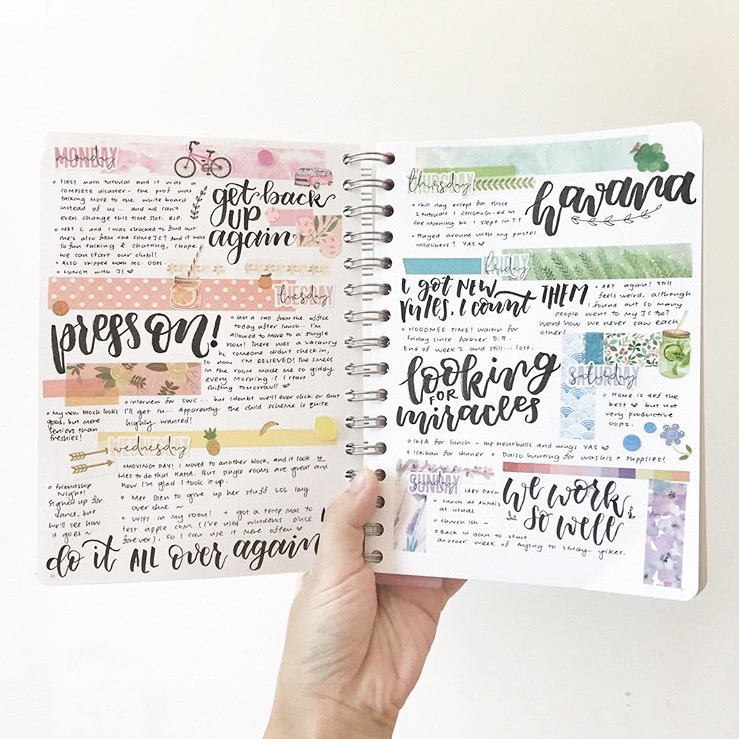 MONDAY
monday
• FIRST math tutorial and it was a
COMPLETE DISASTER – the prof was
talking more to the white board
instead of us – and we can't
even change this time slot. R.I.P.
• MET C and I was shocked to find out
also from the same JC! And it was
so fun talking & chatting, I hope
we can start our club!!
• ALSO skipped math lec. OOPS.
• LUNCH with J!
get back
up
again
TUESDAY
tuesday
press on!
• Got a call from the office
today after lunch – I'm
allowed to move to a single
room! There was a vacancy
bc someone didn't check in,
now I'M RELIEVED! The smell
in the room made me so giddy
every morning. I start
shifting tomorrow!!
• Interview for SWC – but I doubt we'll ever click or that
I'll get in... Apparently the child scheme is quite
highly wanted!
• My new block looks
good, but more
seniors than
freshies!
WEDNESDAY
wednesday
• MOVING DAY! I moved to another block, and it took
to do this HAHA. But single rooms are great and
how I'm glad I took it up.
• Met Ben to give up her stuff LOL long
over due ~
• WIFI in my room! + got a temp mac to
test apple (I've used windows since
forever), so I can use it more often
• Friendship
Night!
Signed up for
dance, but
we'll see how
it goes ~
do it ALL over again
THURSDAY
thursday
havana
• Chill day except for those
2 tutorials I
the morning bc I slept in T.T
• Played around with my pastel
mildliners! YAS
FRIDAY
friday
I got NEW
rules, I count
THEM
• ART again! Still
feels weird, although
I found out so many
people went to my JC too?
Weird how we never saw each
other!
• HOOOMEE TIME! Waitin for
Friday since forever
End of week 2 and still... lost.
looking
FOR
miracles
SATURDAY
saturday
• Home is def the
best but not
very productive
oops.
• IKEA for lunch – the meatballs and wings YAS
• Ichiban for dinner + Daiso hunting for washis + supplies!
SUNDAY
sunday
LAZY DAY!!
• Lunch at
as usual
• Church ish –
• Back to dorm to start
another week of trying to study. yikes.
we work
so well